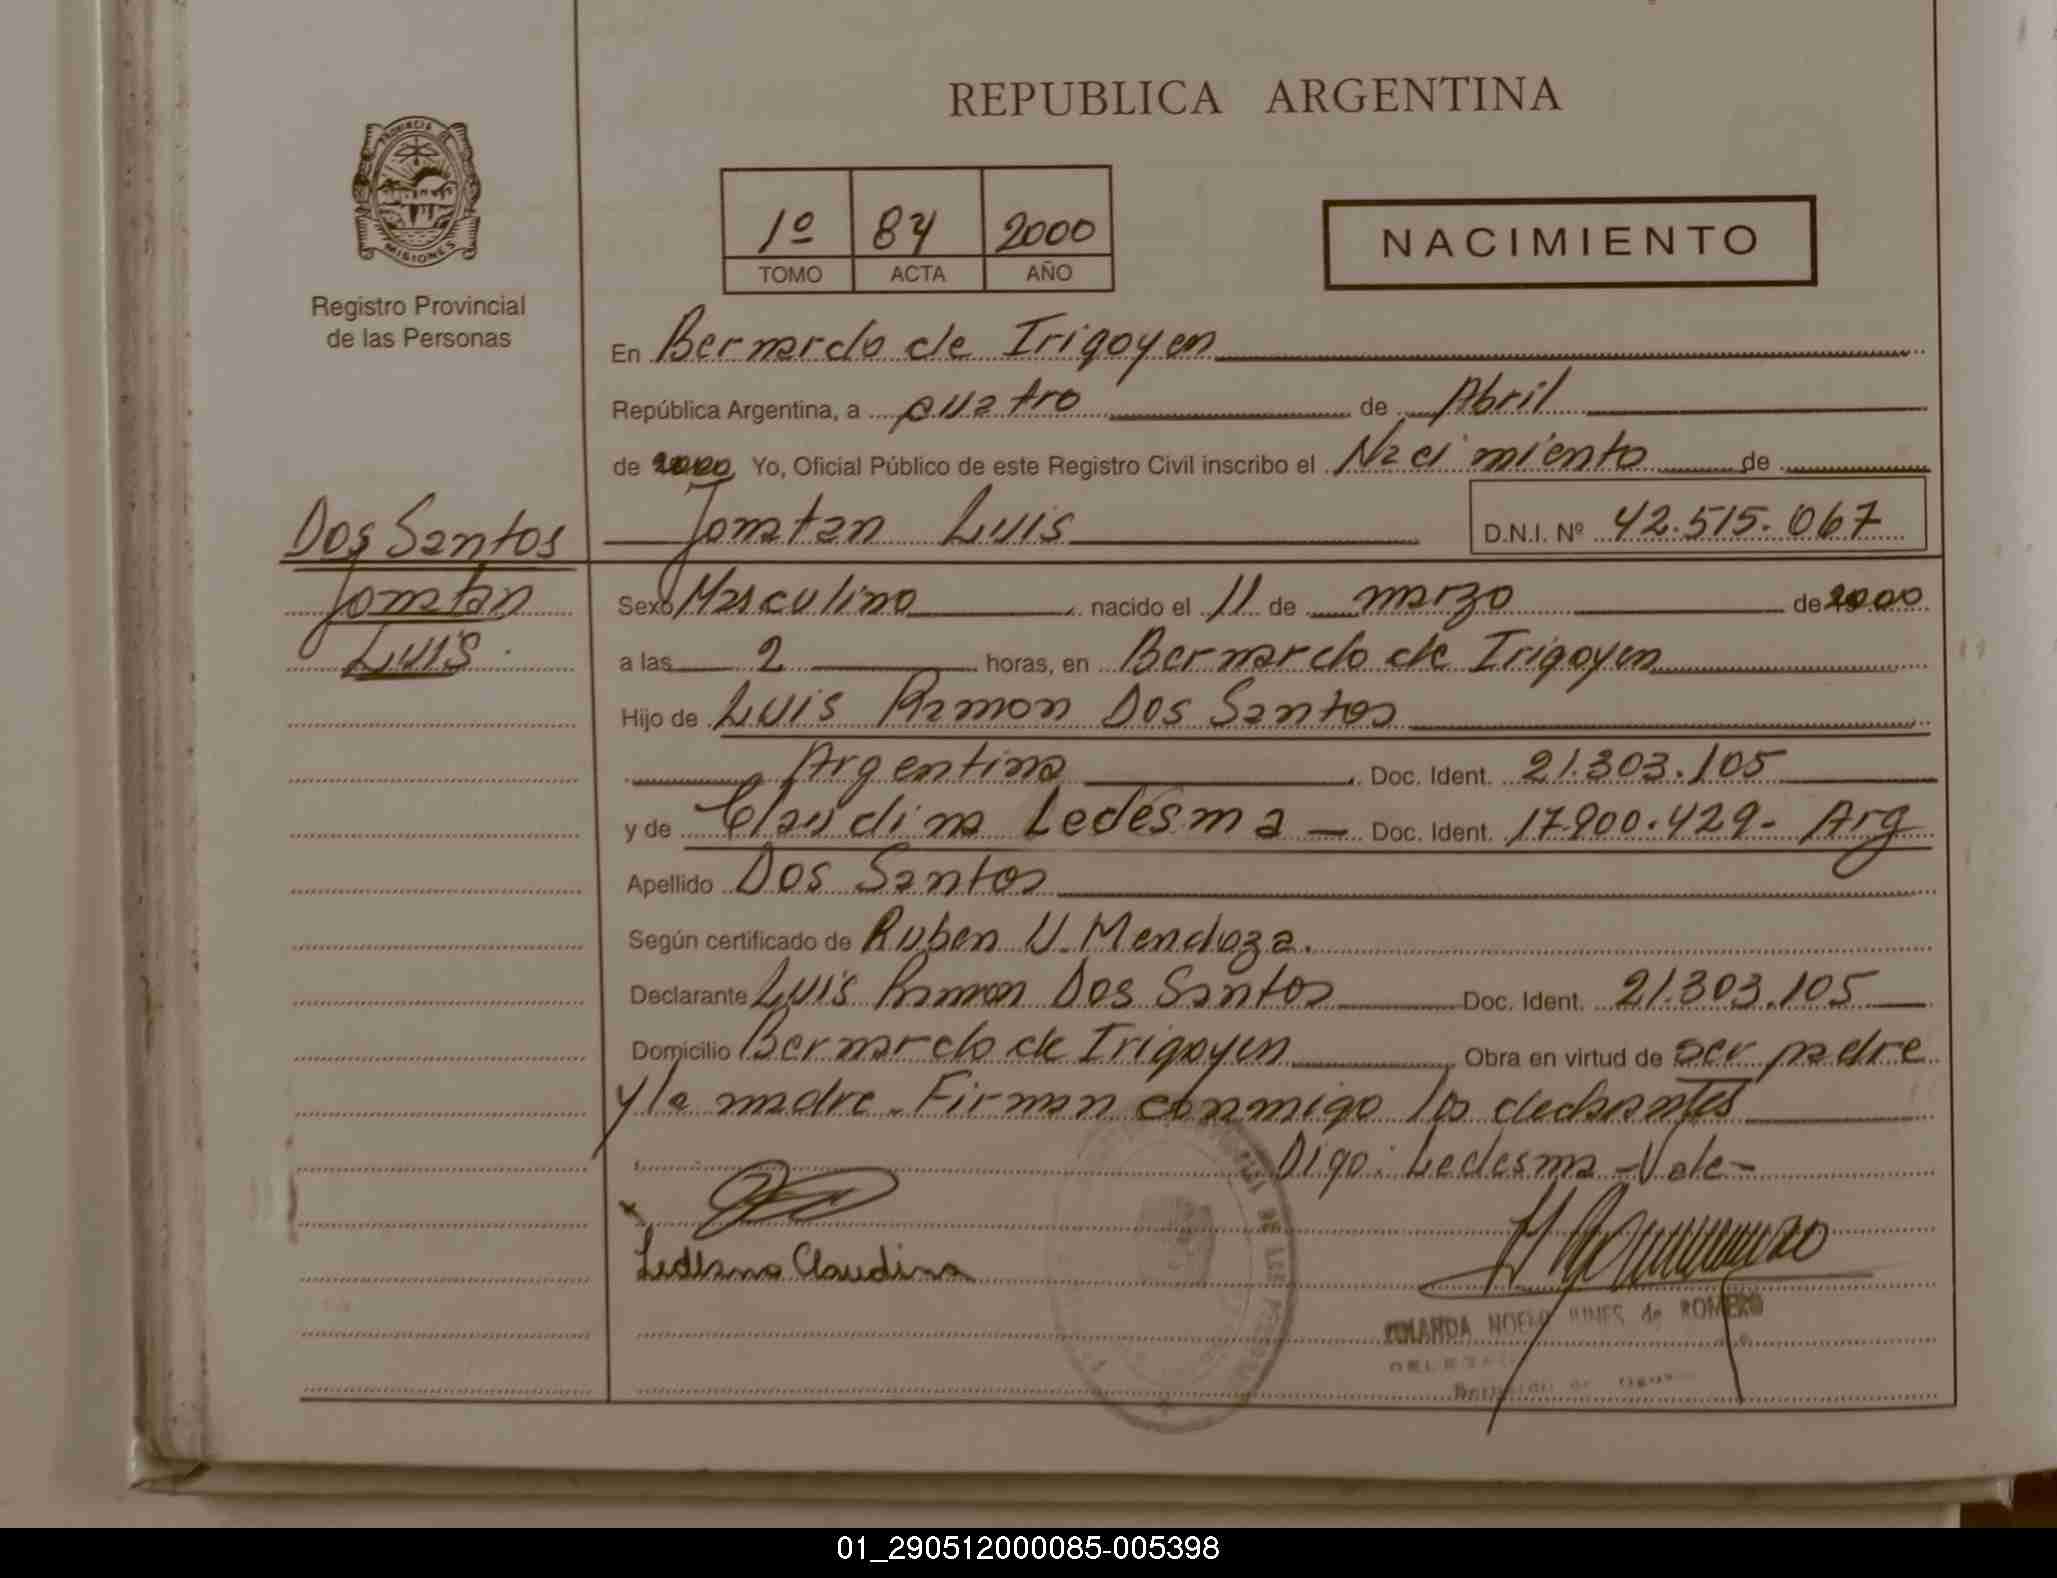 PROVINCIA DE
MISIONES
Registro Provincial
de las Personas
REPUBLICA ARGENTINA
1º 84 2000
TOMO ACTA AÑO
NACIMIENTO
En Bernardo de Irigoyen
República Argentina, a cuatro de Abril
de 2000 Yo, Oficial Público de este Registro Civil inscribo el Nacimiento de
Jonatan Luis D.N.I. Nº 42.515.067
Dos Santos
Jonatan
Luis
Sexo Masculino nacido el 11 de marzo de 2000
a las 2 horas, en Bernardo de Irigoyen
Hijo de Luis Ramon Dos Santos
Argentina Doc. Ident. 21.303.105
y de Claudina Ledesma Doc. Ident. 17.900.429- Arg
Apellido Dos Santos
Según certificado de Ruben U. Mendoza.
Declarante Luis Ramon Dos Santos Doc. Ident. 21.303.105
Domicilio Bernardo de Irigoyen Obra en virtud de ser padre
y la madre. Firman conmigo los
Digo: Ledesma -Vale-
Ledesma Claudina
NOEMI de ROMERO
01_290512000085-005398